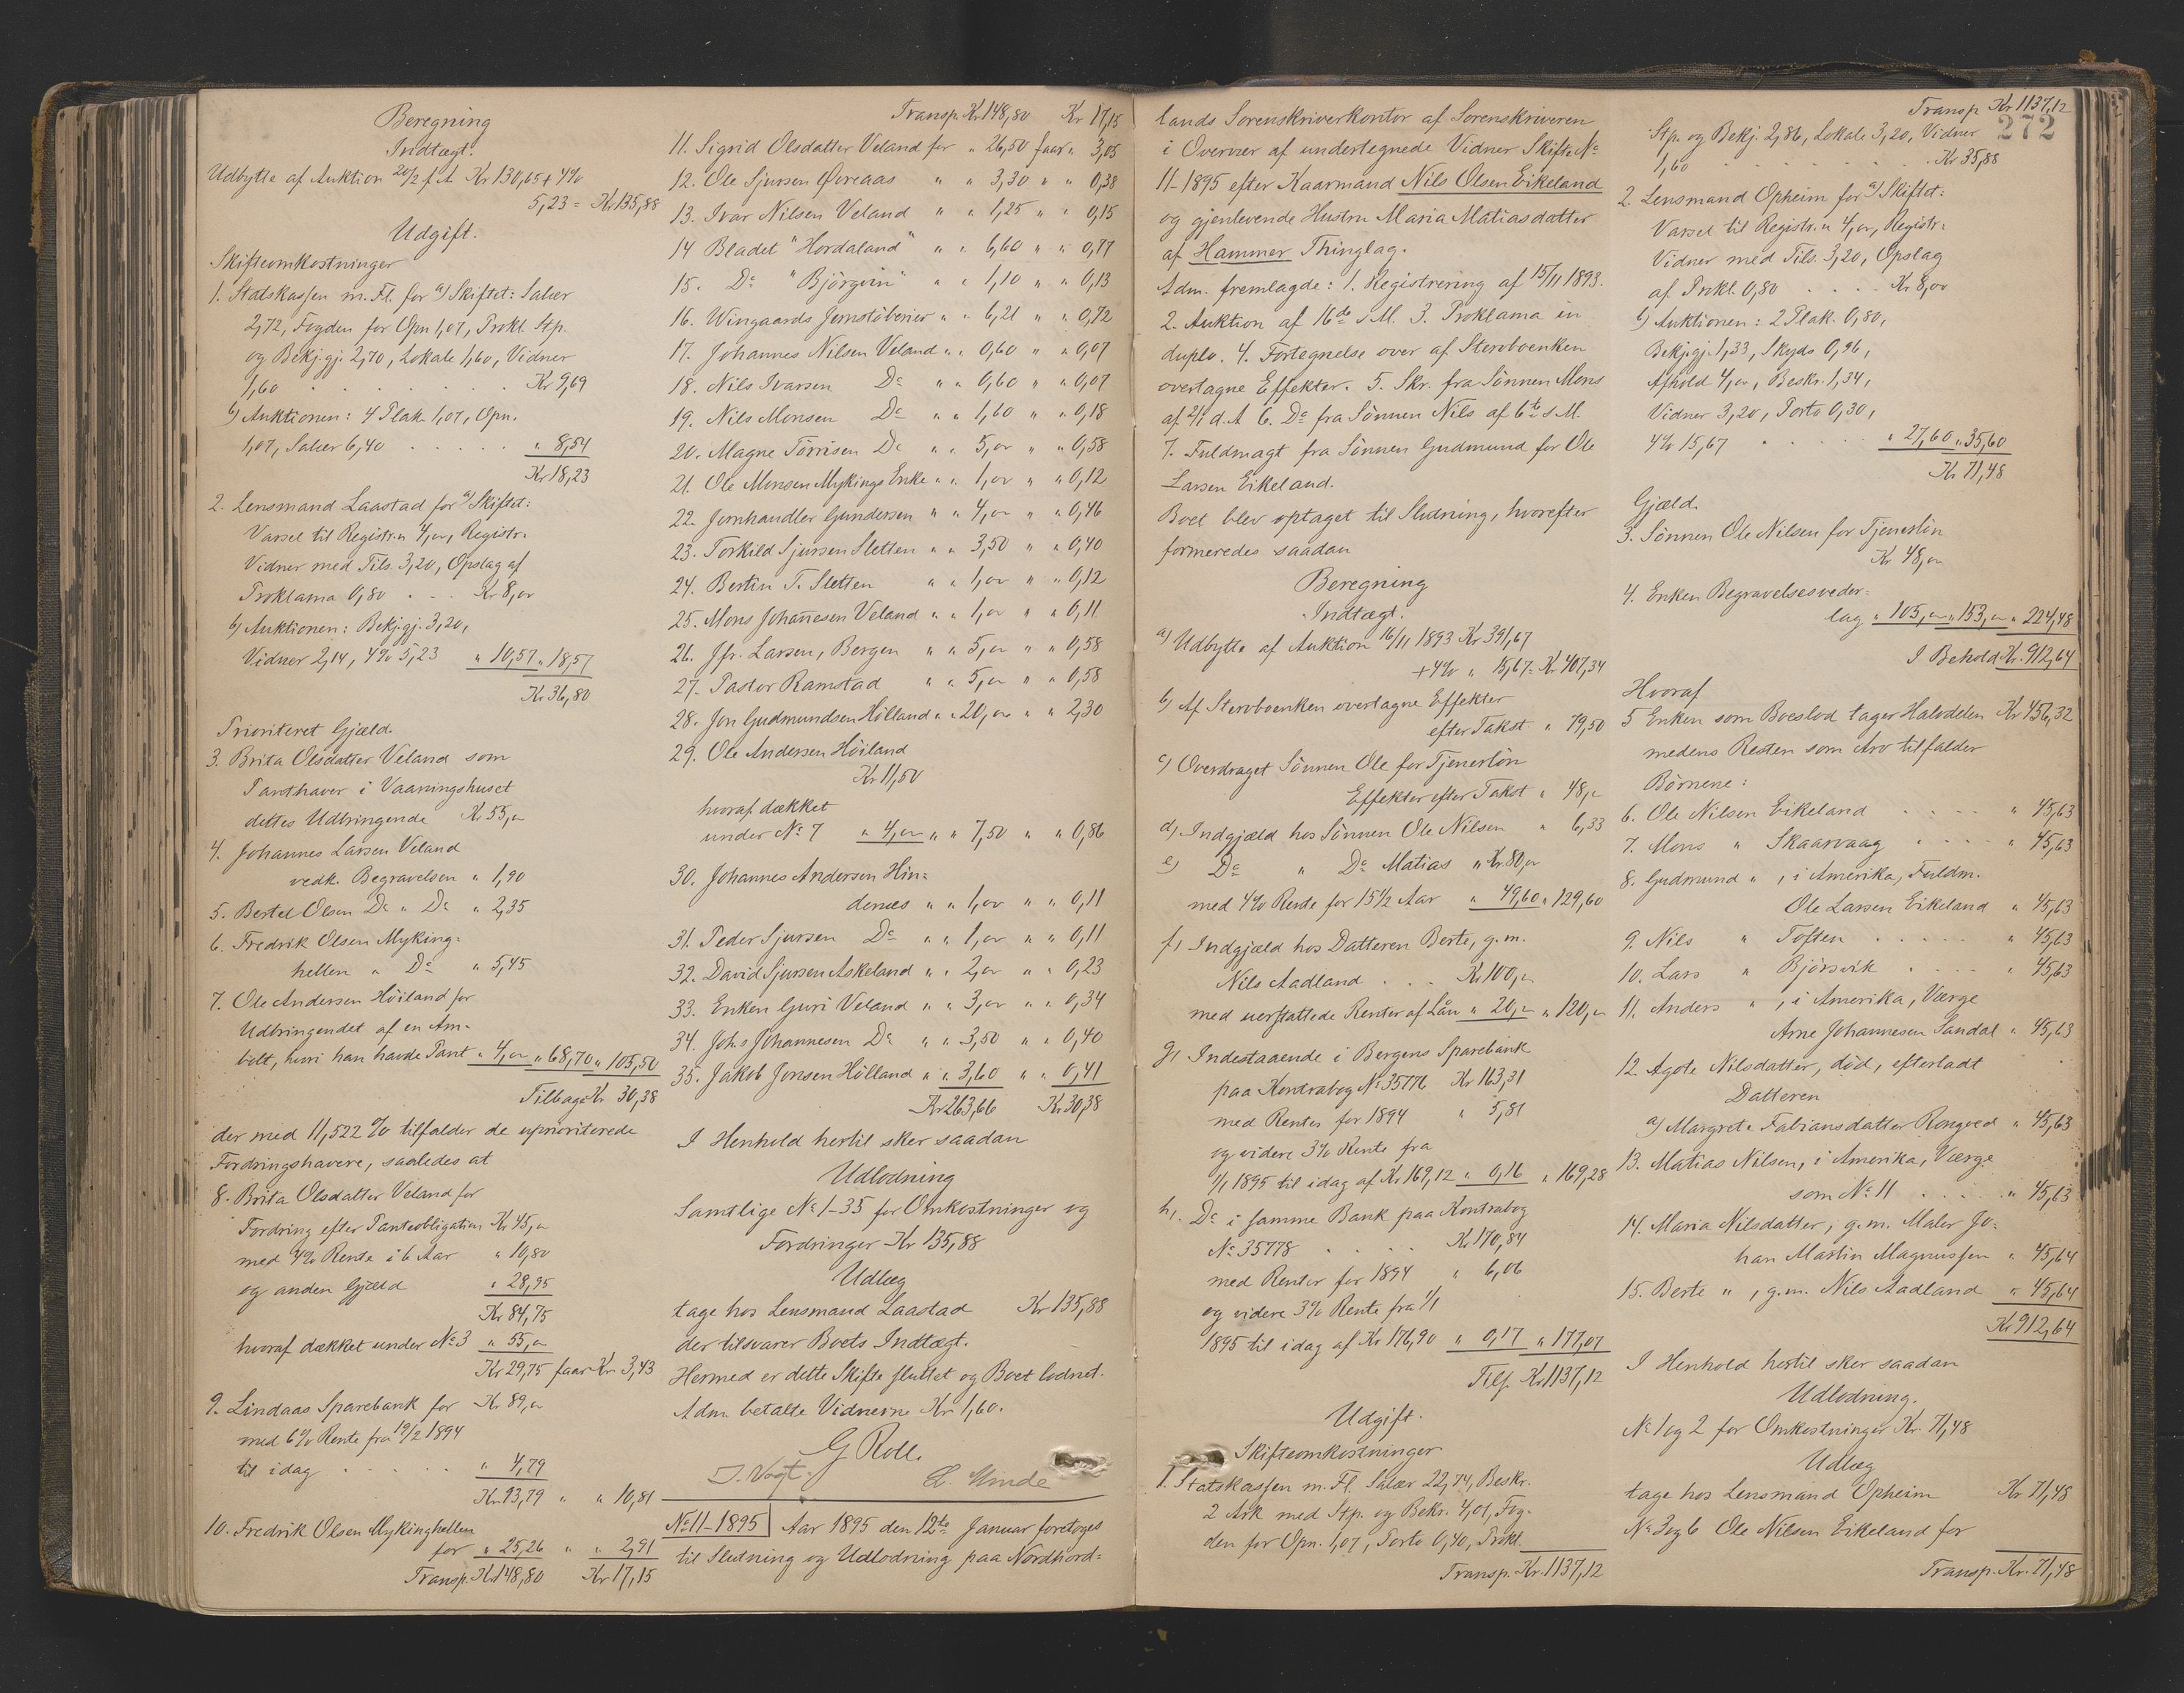 Beregning
Indtægt.
Udbytte af Auktion 20/2 f. A. Kr 130,65 + 4%
5,23 = Kr 135,88
Udgift.
Skifteomkostninger
1. Statskassen m. Fl. for a) Skiftet: Salær
2,72, Fogden for Opn 1,07, Prokl. Stp.
og Bekj.gj. 2,70, Lokale 1,60, Vidner
1,60 . . . . . . . Kr 9,69
b) Auktionen: 4 Plak. 1,07, Opn.
1,07, Salær 6,40 . . . . . " 8,54
Kr 18,23
2. Lensmand Laastad for a) Skiftet:
Varsel til Registr.n 4,00, Registr.
Vidner med Tils. 3,20, Opslag af
Proklama 0,80 . . . Kr 8,00
b) Auktionen: Bekj.gj. 3,20,
Vidner 2,14, 4% 5,23 " 10,57 " 18,57
Kr 36,80
Prioriteret Gjæld.
3. Brita Olsdatter Veland som
Panthaver i Vaaningshuset
dettes Udbringende Kr 55,00
4. Johannes Larsen Veland
vedk. Begravelsen " 1,90
5. Bertel Olsen Do " Do " 2,35
6. Fredrik Olsen Myking=
hellen " Do " 5,45
7. Ole Andersen Höiland for
Udbringendet af en Am=
bolt, hvori han havde Pant " 4,00 " 68,70 " 105,50
Tilbage Kr 30,38
der med 11,522 % tilfalder de uprioriterede
Fordringshavere, saaledes at
8. Brita Olsdatter Veland for
Fordring efter Panteobligation Kr 45,00
med 4% Rente i 6 Aar " 10,80
og anden Gjæld " 28,95
Kr 84,75
hvoraf dækket under No 3 " 55,00
Kr 29,75 faar Kr 3,43
9. Lindaas Sparebank for Kr 89,00
med 6% Rente fra 19/2 1894
til idag . . . . . " 4,79
Kr 93,79 " " 10,81
10. Fredrik Olsen Mykinghellen
for " 25,26 " " 2,91
Transp. Kr 148,80 Kr 17,15
Transp. Kr 148,80 Kr 17,15
11. Sigrid Olsdatter Veland for " 26,50 faar " 3,05
12. Ole Sjursen Øvreaas " " 3,30 " " 0,38
13. Ivar Nilsen Veland " " 1,25 " " 0,15
14 Bladet "Hordaland" " " 6,60 " " 0,77
15. Do "Björgvin" " " 1,10 " " 0,13
16. Wingaards Jernstöberier " " 6,21 " " 0,72
17. Johannes Nilsen Veland " " 0,60 " " 0,07
18. Nils Ivarsen Do " " 0,60 " " 0,07
19. Nils Monsen Do " " 1,60 " " 0,18
20. Magne Törrisen Do " " 5,00 " " 0,58
21. Ole Monsen Mykings Enke " " 1,00 " " 0,12
22. Jernhandler Gundersen " " 4,00 " " 0,46
23. Torkild Sjursen Sletten " " 3,50 " " 0,40
24. Bertin T. Sletten " " 1,00 " " 0,12
25. Mons Johannesen Veland " " 1,00 " " 0,11
26. Jfr. Larsen, Bergen " " 5,00 " " 0,58
27. Pastor Ramstad " " 5,00 " " 0,58
28. Jon Gudmundsen Hölland " " 20,00 " " 2,30
29. Ole Andersen Höiland
Kr 11,50
hvoraf dækket
under No 7 " 4,00 " " 7,50 " " 0,86
30. Johannes Andersen Hin=
denes " " 1,00 " " 0,11
31. Peder Sjursen Do " " 1,00 " " 0,11
32. David Sjursen Askeland " " 2,00 " " 0,23
33. Enken Guri Veland " " 3,00 " " 0,34
34. Johs Johannesen Do " " 3,50 " " 0,40
35. Jakob Jonsen Hölland " " 3,60 " " 0,41
Kr 263,66 Kr 30,38
I Henhold hertil sker saadan
Udlodning
Samtlige No 1–35 for Omkostninger og
Fordringer Kr 135,88
Udlæg
tage hos Lensmand Laastad Kr 135,88
der tilsvarer Boets Indtægt.
Hermed er dette Skifte sluttet og Boet lodnet.
Adm. betalte Vidnerne Kr 1,60.
G Roll.
J. Vogt.
No 11–1895 Aar 1895 den 12te Januar foretoges
til Slutning og Udlodning paa Nordhord=
272
lands Sorenskriverkontor af Sorenskriveren
i Overvær af undertegnede Vidner Skifte No
11–1895 efter Kaarmand Nils Olsen Eikeland
og gjenlevende Hustru Maria Matiasdatter
af Hammer Thinglag.
Adm. fremlagde: 1. Registrering af 15/11 1893.
2. Auktion af 16de s. M. 3. Proklama in
duplo. 4. Fortegnelse over af Stervboenken
overtagne Effekter. 5. Skr. fra Sönnen Mons
af 2/1 d. A 6. Do fra Sönnen Nils af 6te s. M.
7. Fuldmagt fra Sönnen Gudmund for Ole
Larsen Eikeland.
Boet blev optaget til Slutning, hvorefter
formeredes saadan
Beregning
Indtægt.
a) Udbytte af Auktion 16/11 1893 Kr 391,67
+ 4% " 15,67 = Kr 407,34
b) Af Stervboenken overtagne Effekter
efter Takst " 79,50
c) Overdraget Sönnen Ole for Tjenerlön
Effekter efter Takst " 48,00
d) Indgjæld hos Sönnen Ole Nilsen " 6,33
e) Do " Do Matias " Kr 80,00
med 4% Rente for 15½ Aar " 49,60 " 129,60
f) Indgjæld hos Datteren Berte, g. m.
Nils Aadland . . . Kr 100,00
med uerstattede Renter af Lån " 20,00 " 120,00
g) Indestaaende i Bergens Sparebank
paa Kontrabog No 35776 Kr 163,31
med Renter for 1894 " 5,81
og videre 3% Rente fra
1/1 1895 til idag af Kr 169,12 " 0,16 " 169,28
h) Do i samme Bank paa Kontrabog
No 35778 . . . . . Kr 170,84
med Renter for 1894 " 6,06
og videre 3% Rente fra 1/1
1895 til idag af Kr 176,90 " 0,17 " 177,07
Tils. Kr 1137,12
Udgift.
Skifteomkostninger
1. Statskassen m. Fl. Salær 22,74, Beskr.
2 Ark med Stp. og Bekr. 4,01, Fog=
den for Opn. 1,07, Porto 0,40, Prokl.
Transp. Kr. 1137,12
Transp Kr 1137,12
Stp. og Bekj. 2,86, Lokale 3,20, Vidner
1,60 . . . . . . . Kr 35,88
2. Lensmand Opheim for a) Skiftet:
Varsel til Registr.n 4,00, Registr=
Vidner med Tils. 3,20, Opslag
af Prokl. 0,80 . . . . Kr 8,00
b) Auktionen: 2 Plak. 0,80,
Bekj.gj. 1,33, Skyds 0,96,
Afhold 4,00, Beskr. 1,34,
Vidner 3,20, Porto 0,30,
4% 15,67 . . . . . " 27,60 " 35,60
Kr 71,48
Gjæld.
3. Sönnen Ole Nilsen for Tjenerlön
Kr 48,00
4. Enken Begravelsesveder=
lag " 105,00 " 153,00 " 224,48
I Behold Kr. 912,64
Hvoraf
5 Enken som Boeslod tager Halvdelen Kr 456,32
medens Resten som Arv tilfalder
Börnene:
6. Ole Nilsen Eikeland . . . . " 45,63
7. Mons " Skaarvaag . . . . " 45,63
8. Gudmund " , i Amerika, Fuldm.
Ole Larsen Eikeland " 45,63
9. Nils " Toften . . . . . " 45,63
10. Lars " Björsvik . . . . " 45,63
11. Anders " , i Amerika, Værge
Arne Johannesen Sandal " 45,63
12. Agote Nilsdatter, död, efterladt
Datteren
a) Margrete Fabiansdatter Rongved " 45,63
13. Matias Nilsen, i Amerika, Værge
som No 11 . . . . " 45,63
14. Maria Nilsdatter, g. m. Maler Jo=
han Martin Magnussen " 45,64
15. Berte " , g. m. Nils Aadland " 45,64
Kr 912,64
I Henhold hertil sker saadan
Udlodning.
No 1 og 2 for Omkostninger Kr. 71,48
Udlæg
tage hos Lensmand Opheim Kr 71,48
No 3 og 6 Ole Nilsen Eikeland for
Transp. Kr. 71,48